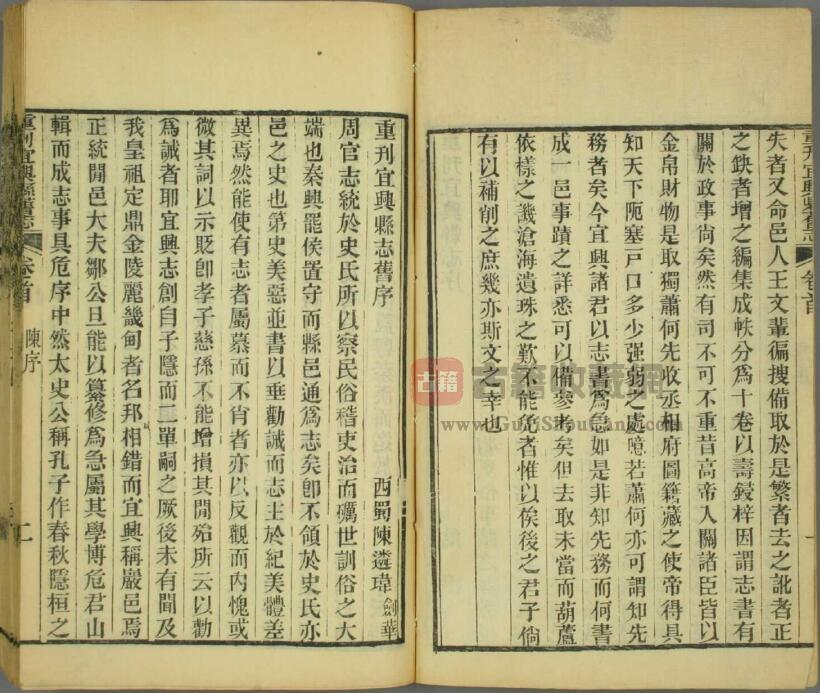 失者又命邑人王文輩徧搜備取於是繁者去之訛者正
之缺者增之編集成帙分為十卷以壽鋟梓因謂志書有
關於政事尚矣然有司不可不重昔高帝入關諸臣皆以
金帛財物是取獨蕭何先收丞相府圖籍藏之使帝得具
知天下阨塞戸口多少强弱之處噫若蕭何亦可謂知先
務者矣今宜興諸君以志書為急如是非知先務而何書
成一邑事蹟之詳悉可以備參考矣但去取未當而葫蘆
依樣之譏滄海遺珠之歎不能免者惟以俟後之君子倘
有以補削之庶幾亦斯文之幸也
重刊宜興縣舊志
卷首
重刊宜興縣志舊序
西蜀陳遴瑋 劍華
周官志統於史氏所以察民俗稽吏治而礪世訓俗之大
端也秦興罷侯置守而縣邑通爲志矣卽不領於史氏亦
邑之史也第史美惡並書以垂勸誡而志主於紀美體差
異焉然能使有志者屬慕而不肖者亦以反觀而內愧或
微其詞以示貶卽孝子慈孫不能增損其閒殆所云以勸
爲誡者耶宜興志創自子隱而二單嗣之厥後未有聞及
我皇祖定鼎金陵麗畿甸者名邦相錯而宜興稱巖邑焉
正統開邑大夫鄒公旦能以纂修爲急屬其學博危君山
輯而成志事具危序中然太史公稱孔子作春秋隱桓之
重刊宜興縣舊志
卷首
陳序
二
古籍
古籍收藏網
www.GuJiShouCang.com